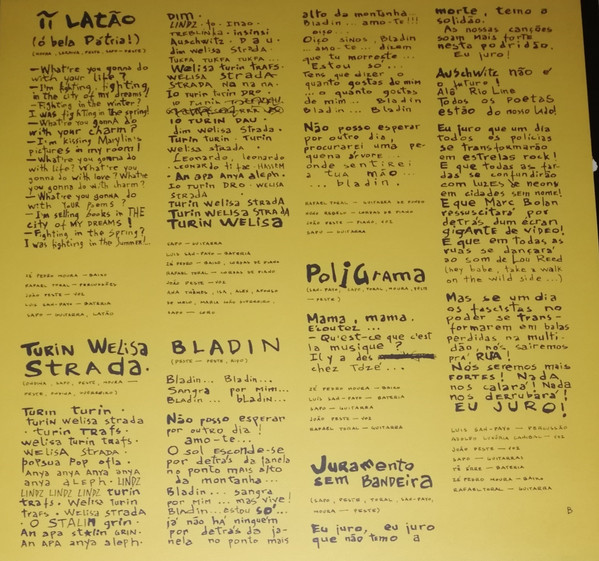 ĩĩ LATÃO
(ó bela Pátria!)
— What're you gonna do
with your life?
— I'm fighting, fighting
in the city of my dreams!
— Fighting in the winter?
I was fighting in the spring!
— What're you gonna do
with your charm?
— I'm kissing Marylin's
pictures in my room!
— What're you gonna do
with life? What're you
gonna do with love? What're
you gonna do with charm?
— What're you gonna do
with your poems?
— I'm selling books in THE
city OF MY DREAMS!
— Fighting in the Spring?
I was fighting in the Summer!..
ZÉ PEDRO MOURA — BAIXO
RAFAEL TORAL — PERCUSSÃO
JOÃO PESTE — VOZ
LUIS SAN-PAYO — BATERIA
SAPO — GUITARRA, LATÃO
TURIN WELISA
STRADA.
TURIN turin.
Turin welisa strada
. turin TRAFS.
welisa Turin trafs.
WELISA STRADA.
popsua Pop ofla.
Anya anya anya anya
anya aleph. LINDZ
LINDZ LINDZ LINDZ turin
trafs. Welisa Turin
trafs. Welisa strada
. O STALIN grin.
An apa stalin GRIN.
An apa anya aleph.
DIM.
TREBLINKA
Auschwitz. Dau.
dim welisa Strada.
TURPA TURPA TURPA...
Welisa turin TRAFS.
WELISA STRADA.
STRADA NA NA NA.
Io turin turin DRO.
IO TURIN DAU.
dim welisa Strada.
Turin. Turin. Turin
welisa strada.
Leonardo, leonardo
An apa anya aleph.
Io turin DRO. WELISA
STRADA.
Turin welisa strada
TURIN WELISA STRADA
TURIN WELISA
SAPO — GUITARRA
LUIS SAN-PAYO — BATERIA
ZÉ PEDRO MOURA — BAIXO, COROS DE PIANO
RAFAEL TORAL — COROS DE PIANO
JOÃO PESTE — VOZ
SAPO — CORO
BLADIN
Bladin... Bladin...
Sangra por mim...
BLADIN... bLADIN...
Não posso esperar
por outro dia!
amo-te...
O sol esconde-se
por detrás da janela
no ponto mais alto
da montanha...
Bladin... sangra
por mim... mas vive!
Bladin... estou só...
já não há ninguém
por detrás da ja-
nela no ponto mais
alto da montanha...
Bladin... amo-te!!!
Oiço...
Oiço sinos, Bladin
... amo-te... dizem
que tu morreste...
Estou só...
Tens que dizer o
quanto gostas de mim
... o quanto gostas
de mim... Bladin
Bladin... Bladin
Não posso esperar
por outro dia,
procurarei uma pe-
quena árvore...
onde sentirei
tua mão...
... bladin.
JOÃO PESTE — VOZ
SAPO — GUITARRA
POLIGRAMA
Mama, mama.
Ecoutez...
— Qu'est-ce que c'est
la musique?
Il y a des
chez Tozé...
ZÉ PEDRO MOURA — BAIXO
LUIS SAN-PAYO — BATERIA
SAPO — GUITARRA
JOÃO PESTE — VOZ
RAFAEL TORAL — GUITARRA
JURAMENTO
SEM BANDEIRA
(SAPO, PESTE, TORAL, SAN-PAYO,
MOURA — PESTE)
Eu juro, eu juro
que não temo a
morte, temo o
solidão.
As nossas canções
soam mais forte
neste podridão.
Eu juro!
Auschwitz não é
o futuro!
Alô Rio Line
Todos os poetas
estão do nosso lado!
Eu juro que um dia
todos os polícias
se transformarão
em estrelas rock!
E que todas as far-
das se confundirão
com luzes de neons
em cidades sem nome!
E que Marc Bolan
ressuscitará por
detrás dum écran
gigante de vídeo!
E que em todas as
ruas se dançará
ao som de Lou Reed
(hey babe, take a walk
on the wild side...)
Mas se um dia
os fascistas no
poder se trans-
formarem em balas
perdidas na multi-
dão, nós sairemos
prá RUA!
Nós seremos mais
FORTES! Nada
nos calará! Nada
nos derrubará!
EU JURO!
LUIS SAN-PAYO — PERCUSSÃO
ADOLFO LUXÚRIA CANIBAL — VOZ
JOÃO PESTE — VOZ
SAPO — GUITARRAS
ZÉ PEDRO MOURA — BAIXO
RAFAEL TORAL — GUITARRA
B